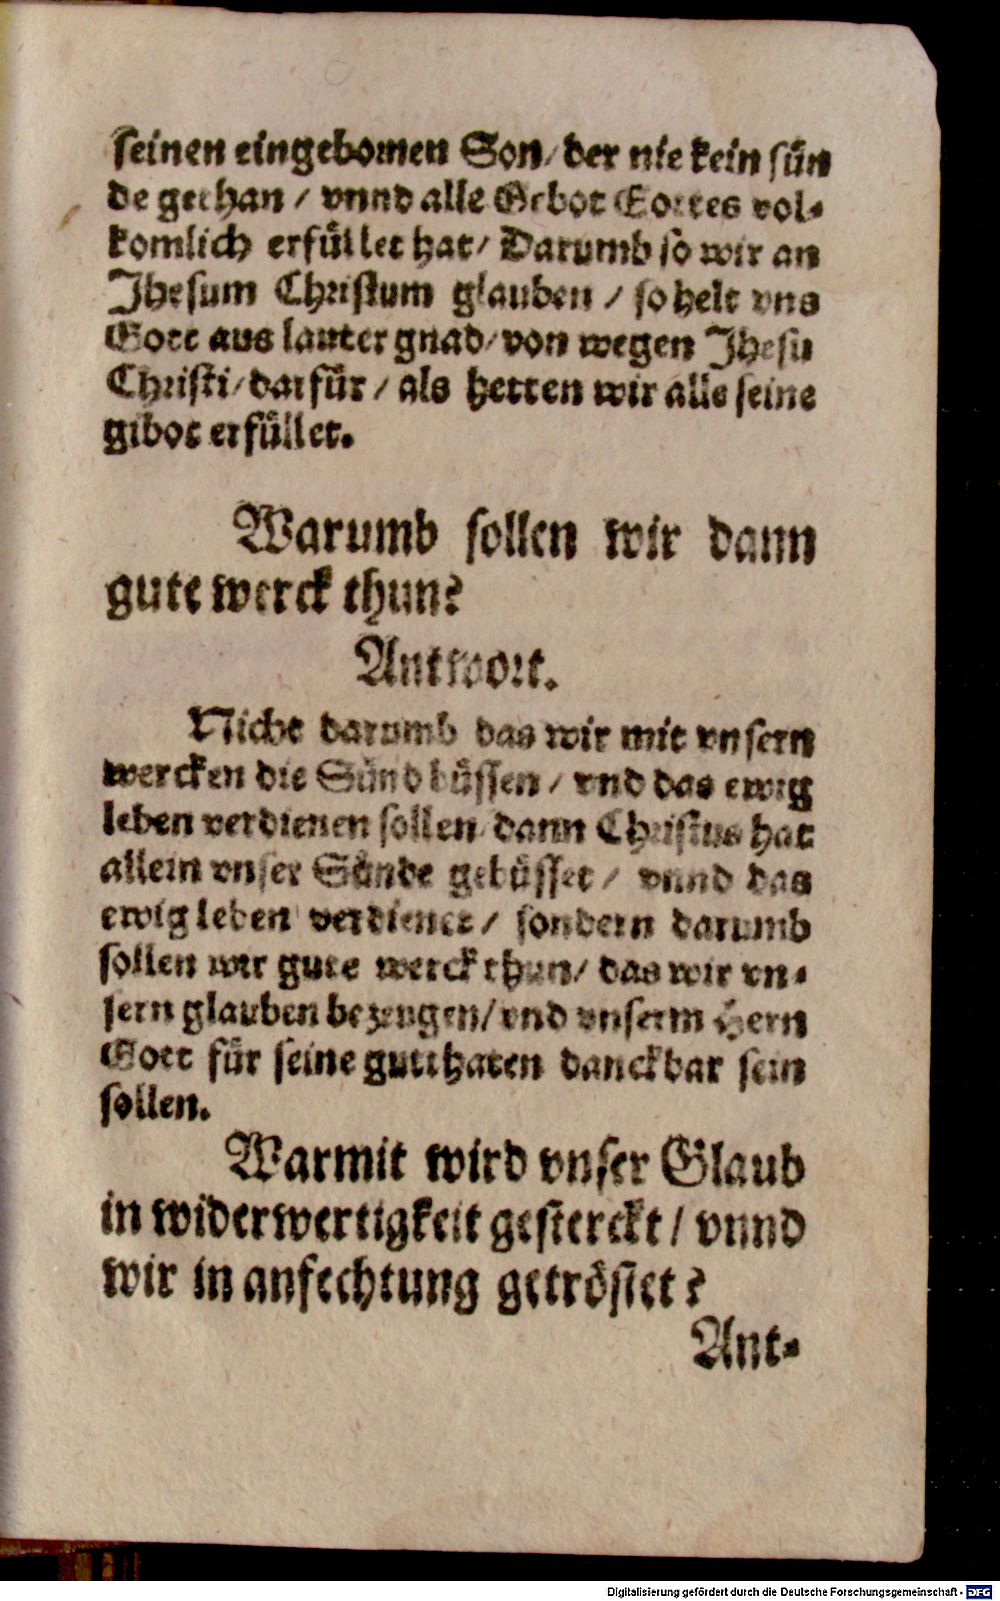 seinen eingebornen Son / der nie kein sün
de gethan / vnnd alle Gebot Gottes vol-
komlich erfüllet hat / Darumb so wir an
Jhesum Christum glauben / so helt vns
Gott aus lauter gnad / von wegen Jhesu
Christi / darfür / als hetten wir alle seine
gibot erfüllet.
Warumb sollen wir dann
gute werck thun?
Antwort.
Nicht darumb das wir mit vnsern
wercken die Sünd büssen / vnd das ewig
leben verdienen sollen / dann Christus hat
allein vnser Sünde gebüsset / vnnd das
ewig leben verdienet / sondern darumb
sollen wir gute werck thun / das wir vn-
sern glauben bezeugen / vnd vnserm Hern
Gott für seine gutthaten danckbar sein
sollen.
Warmit wird vnser Glaub
in widerwertigkeit gesterckt / vnnd
wir in anfechtung getröstet?
Ant-
Digitalisierung gefördert durch die Deutsche Forschungsgemeinschaft - DFG